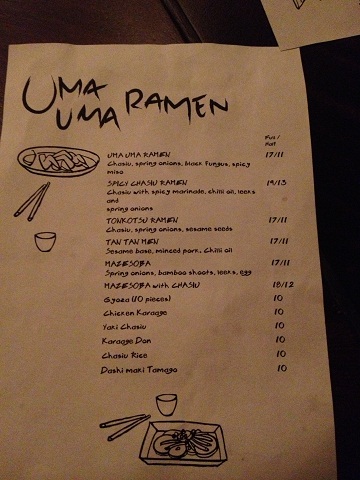 UMA
UMA RAMEN
Full /
Half
UMA UMA RAMEN 17/11
Chasiu, spring onions, black fungus, spicy
miso
SPICY CHASIU RAMEN 19/13
Chasiu with spicy marinade, chilli oil, leeks
and
spring onions
TONKOTSU RAMEN 17/11
Chasiu, spring onions, sesame seeds
TAN TAN MEN 17/11
Sesame base, minced pork, Chilli oil
MAZESOBA 17/11
Spring onions, bamboo shoots, leeks, egg
MAZESOBA with CHASIU 18/12
Gyoza (10 pieces) 10
Chicken Karaage 10
Yaki Chasiu 10
Karaage Don 10
Chasiu Rice 10
Dashi maki Tamago 10